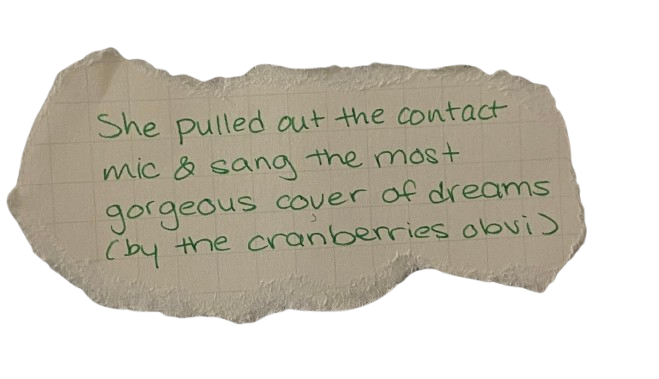 She pulled out the contact
mic & sang the most
gorgeous cover of dreams
(by the cranberries obvi)